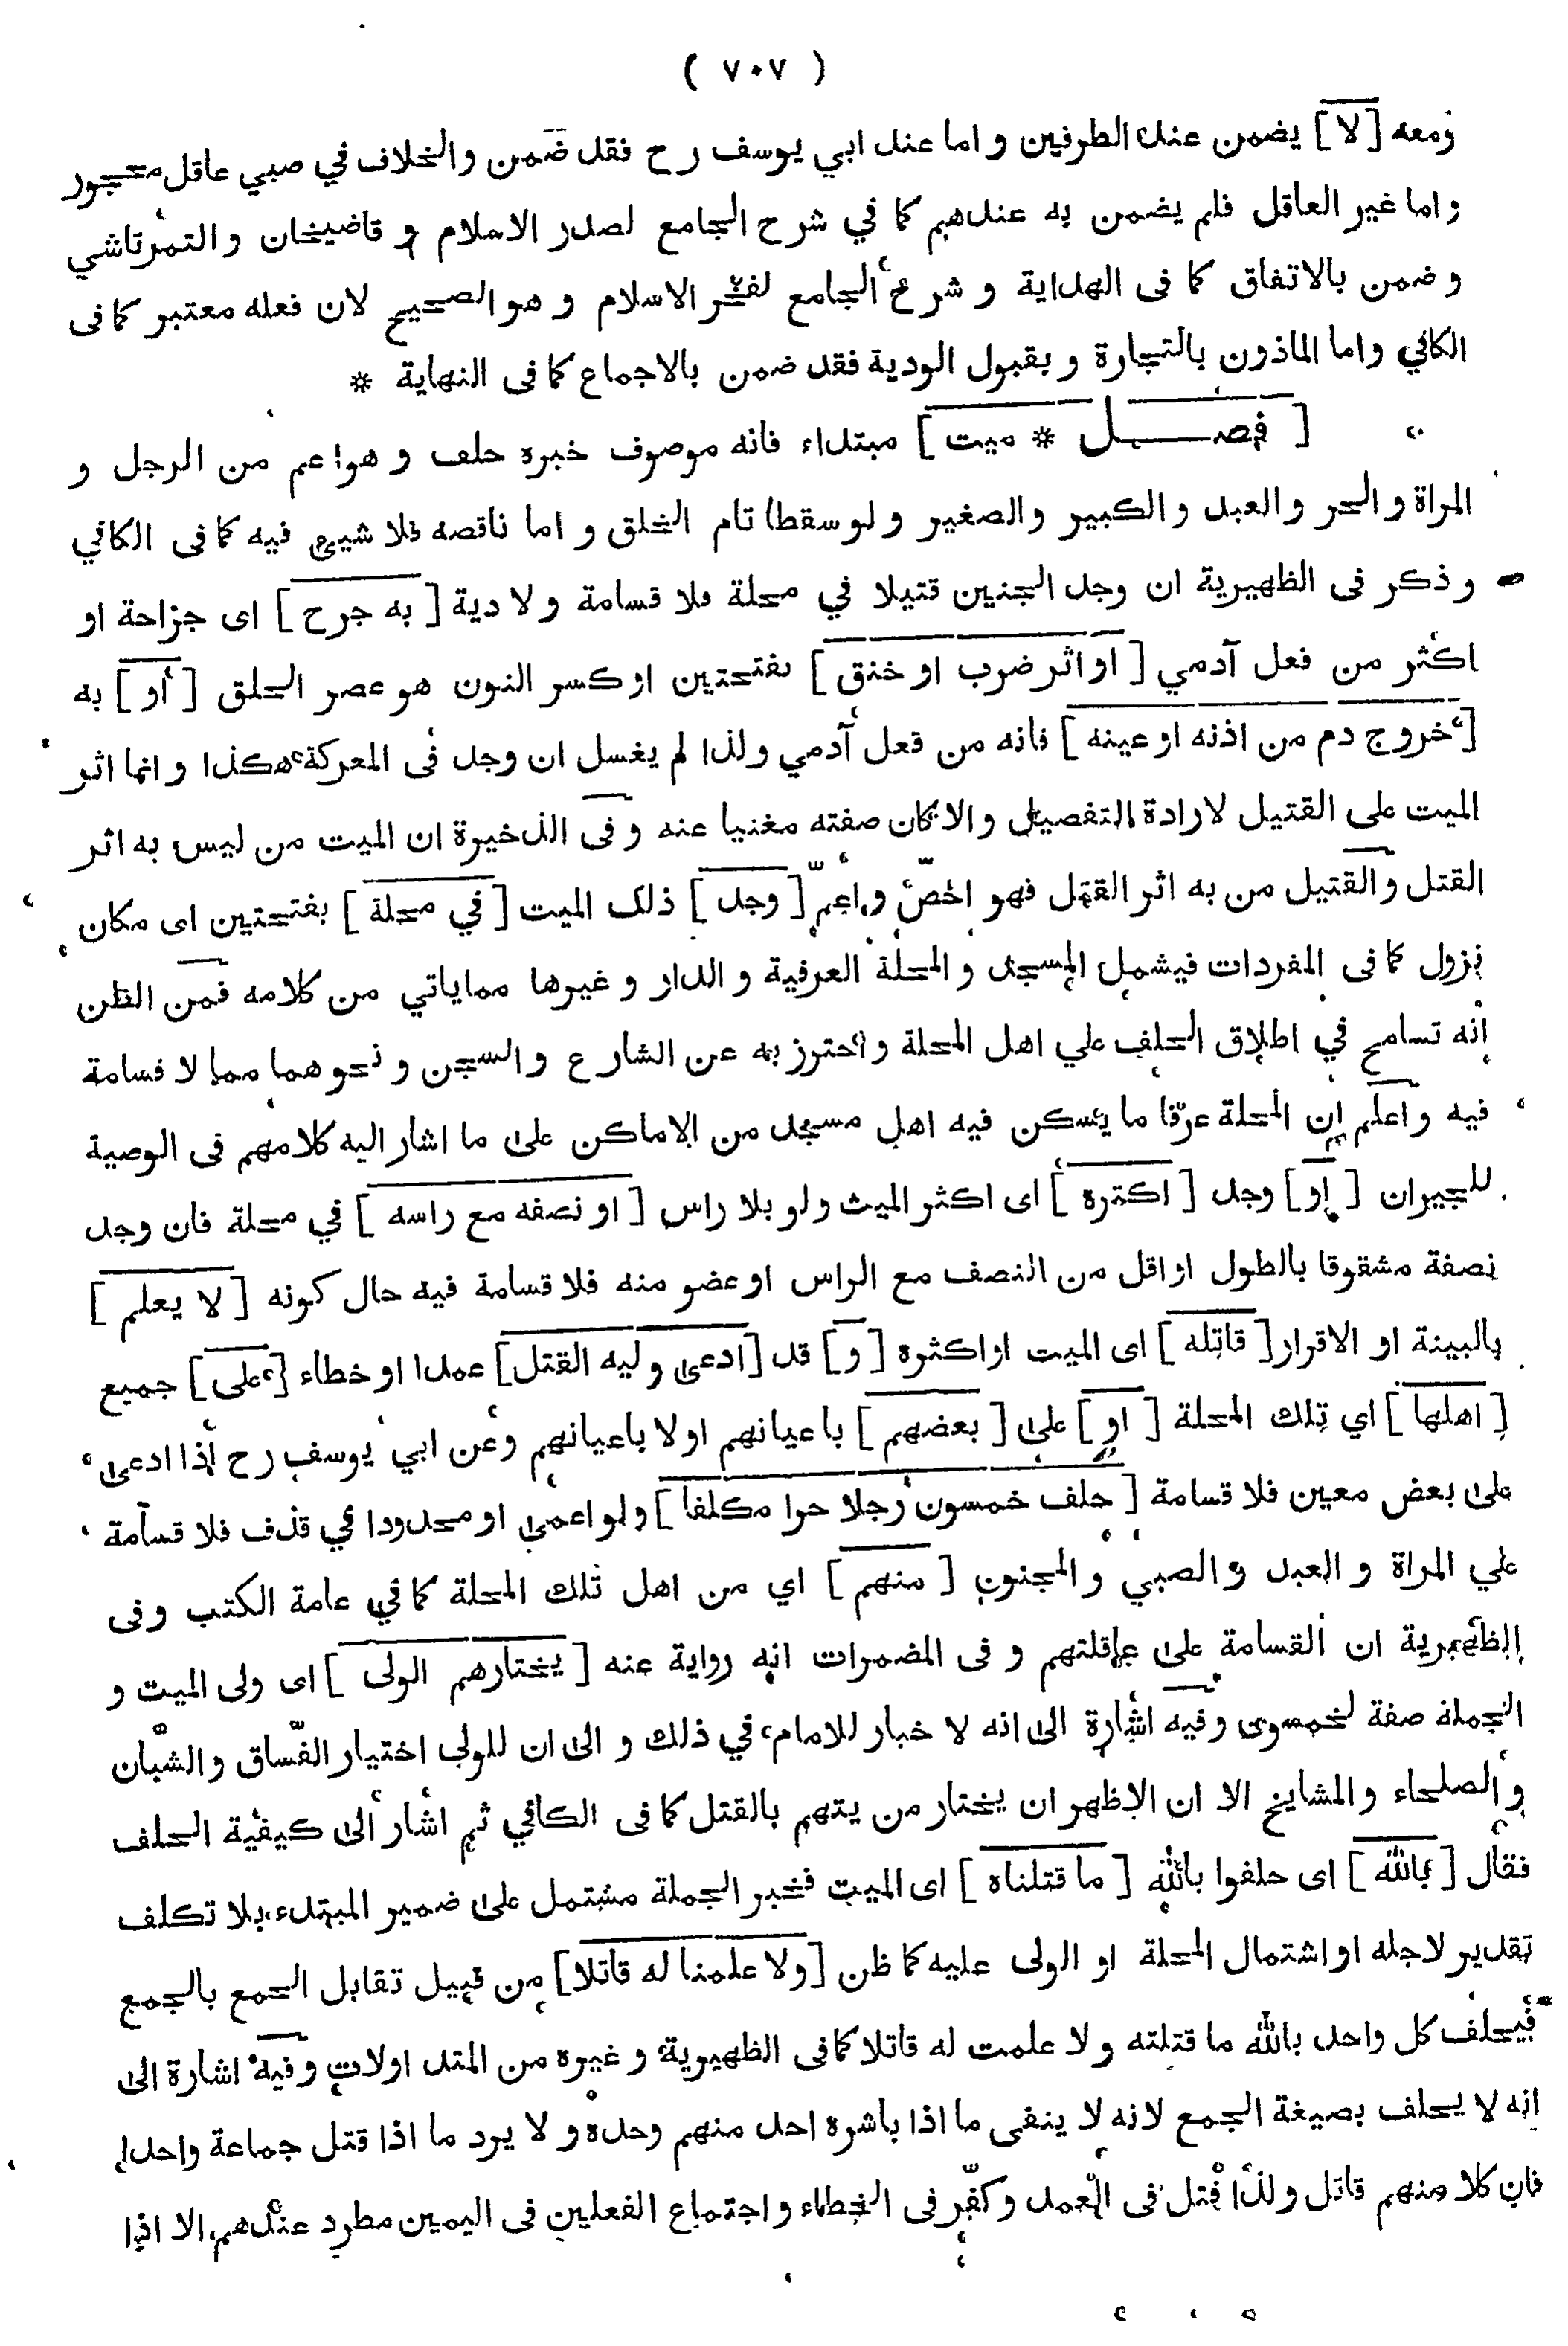 ( ٧٠٧ )
ومعه [لا] يضمن عند الطرفين و اما عند ابي يوسف رح فقد ضمن والخلاف في صبي عاقل محجور
و اما غير العاقل فلم يضمن به عندهم كما في شرح الجامع لصدر الاسلام و قاضيخان و التمرتاشي
و ضمن بالاتفاق كما فى الهداية و شرح الجامع لفخر الاسلام و هو الصحيح لان فعله معتبر كما فى
الكافي واما الماذون بالتجارة و بقبول الودية فقد ضمن بالاجماع كما فى النهاية *
[ فصـــل * ميت ] مبتداء فانه موصوف خبره حلف و هو اعم من الرجل و
المراة و الحر و العبد و الكبير والصغير و لو سقطا تام الخلق و اما ناقصه فلا شيئ فيه كما فى الكافي
و ذكر فى الظهيرية ان وجد الجنين قتيلا في محلة فلا قسامة و لا دية [ به جرح ] اى جراحة او
اكثر من فعل آدمي [ او اثر ضرب او خنق ] بفتحتين او كسر النون هو عصر الحلق [ أو ] به
[ خروج دم من اذنه او عينه ] فانه من فعل آدمي ولذا لم يغسل ان وجد فى المعركة هكذا و انما اثر
الميت على القتيل لارادة التفصيل و الا لكان صفته مغنيا عنه و فى الذخيرة ان الميت من ليس به اثر
القتل والقتيل من به اثر القتل فهو اخصّ و اعمّ [ وجد ] ذلك الميت [ في محلة ] بفتحتين اى مكان
نزول كما فى المفردات فيشمل المسجد و المحلة العرفية و الدار و غيرها مماياتي من كلامه فمن الظن
انه تسامح في اطلاق الحلف علي اهل المحلة و احترز به عن الشارع و السجن و نحوهما مما لا قسامة
فيه و اعلم ان المحلة عرفا ما يسكن فيه اهل مسجد من الاماكن على ما اشار اليه كلامهم فى الوصية
للجيران [ او ] وجد [ اكثره ] اى اكثر الميت ولو بلا راس [ او نصفه مع راسه ] في محلة فان وجد
نصفة مشقوقا بالطول او اقل من النصف مع الراس او عضو منه فلا قسامة فيه حال كونه [ لا يعلم ]
بالبينة او الاقرار [ قاتله ] اى الميت او اكثره [ و ] قد [ ادعى وليه القتل ] عمدا او خطاء [ على ] جميع
[ اهلها ] اي تلك المحلة [ او ] على [ بعضهم ] باعيانهم او لا باعيانهم و عن ابي يوسف رح اذا ادعى
على بعض معين فلا قسامة [ حلف خمسون رجلا حرا مكلفا ] و لو اعمى او محدودا في قذف فلا قسامة
علي المراة و العبد و الصبي و المجنون [ منهم ] اي من اهل تلك المحلة كما في عامة الكتب و فى
الظهيرية ان القسامة على عاقلتهم و فى المضمرات انه رواية عنه [ يختارهم الولى ] اى ولى الميت و
الجملة صفة لخمسون و فيه اشارة الى انه لا خيار للامام في ذلك و الى ان للولى اختيار الفسّاق و الشبّان
و الصلحاء و المشايخ الا ان الاظهر ان يختار من يتهم بالقتل كما فى الكافي ثم اشار الى كيفية الحلف
فقال [ بالله ] اى حلفوا بالله [ ما قتلناه ] اى الميت فخبر الجملة مشتمل على ضمير المبتدء بلا تكلف
تقدير لاجله او اشتمال المحلة او الولى عليه كما ظن [ ولا علمنا له قاتلا ] من قبيل تقابل الجمع بالجمع
فيحلف كل واحد بالله ما قتلته و لا علمت له قاتلا كما فى الظهيرية و غيره من المتداولات و فيه اشارة الى
انه لا يحلف بصيغة الجمع لانه لا ينفى ما اذا باشره احد منهم وحده و لا يرد ما اذا قتل جماعة واحدا
فان كلا منهم قاتل و لذا قتل فى العمد و كفّر فى الخطاء و اجتماع الفعلين فى اليمين مطرد عندهم الا اذا